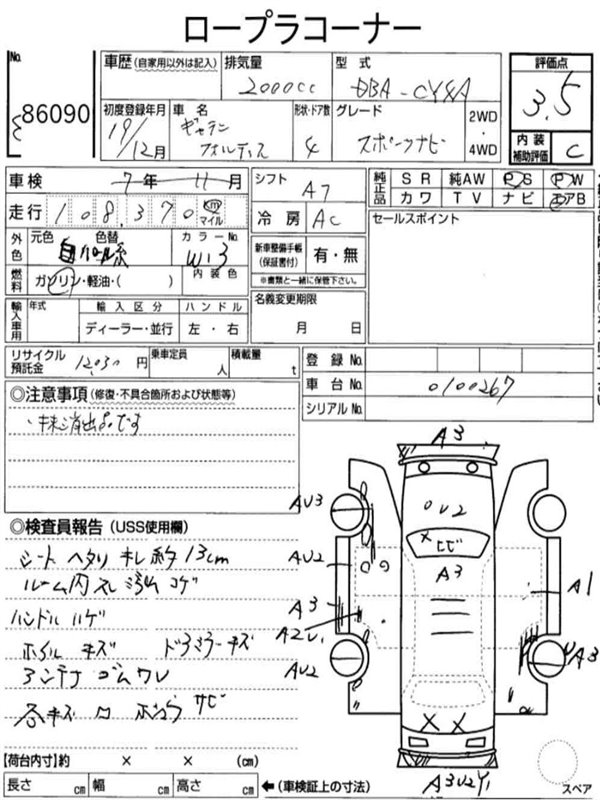 ロープラコーナー
No.
86090
車歴（自家用以外は記入）
排気量
2000cc
型式
DBA-CY4A
評価点
3.5
初度登録年月
19/12月
車名
ギャラン
フォルティス
形状・ドア数
4
グレード
スポーツナビ
2WD
・
4WD
内装
補助評価
C
車検 7年 11月
シフト
A7
純正品
SR 純AW PS PW
カワ TV ナビ エアB
走行 108,370 km マイル
冷房
AC
セールスポイント
外色
元色 色替
自 パール系
カラーNo.
W13
新車整備手帳
(保証書付)
有・無
※書類と一緒に保管下さい。
燃料
ガソリン・軽油・( )
内装色
名義変更期限
月 日
輸入車用
年式
輸入区分
ハンドル
ディーラー・並行
左・右
リサイクル
預託金
12030円
乗車定員
人
積載量
t
登録No.
車台No.
0100267
シリアルNo.
◎注意事項（修復・不具合箇所および状態等）
・抹消出品です
◎検査員報告（USS使用欄）
シート ヘタリ キレ 約13cm
ルーム内 スレ 汚れ コゲ
ハンドル ハゲ
ホイル キズ ドアミラーキズ
アンテナ ゴムワレ
各キズ ロ ボウラ サビ
A3
AU3
U2
ヒビ
AU2
A3
A3
A1
A2U1
AU2
UA3
A3U2Y1
【荷台内寸】約 × × (cm)
長さ cm 幅 cm 高さ cm
←（車検証上の寸法）
スペア